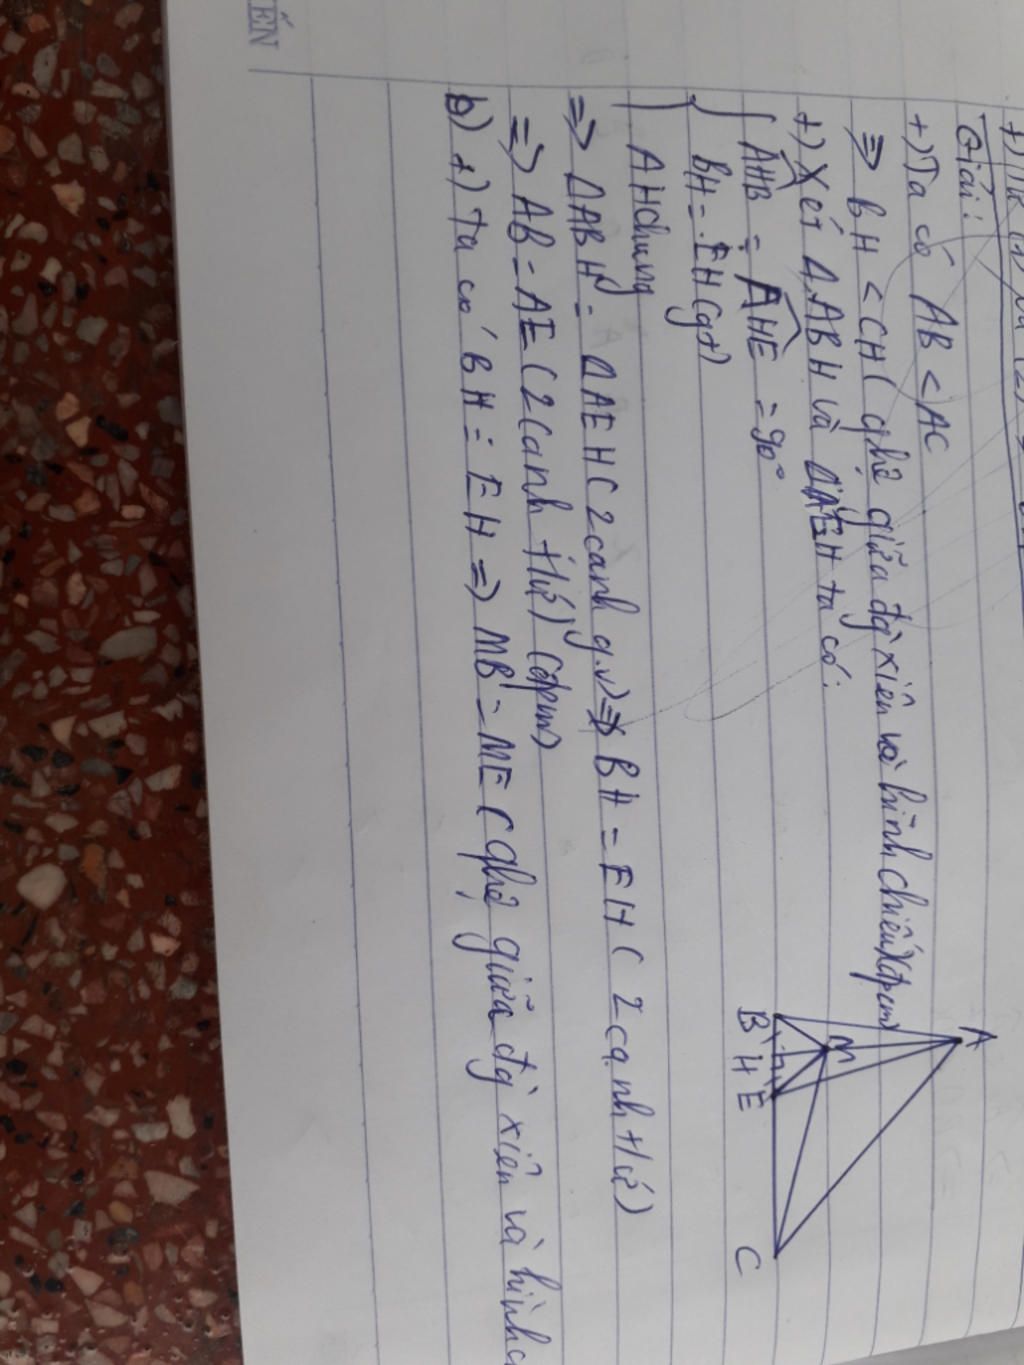 Giải:
+) Ta có AB < AC
=> BH < CH ( qhệ giữa đg` xiên và hình chiếu) (đpcm)
+) Xét Δ ABH và ΔAEH ta có:
AHB = AHE = 90°
BH = EH (gt)
AH chung
=> ΔABH = ΔAEH ( 2 cạnh g.v) => BH = EH ( 2 cạnh t/ứ)
=> AB = AE ( 2 cạnh t/ứ) (đpcm)
b) +) Ta có BH = EH => MB = ME ( qhệ giữa đg` xiên và hình
A
M
B H E
C
ẾN